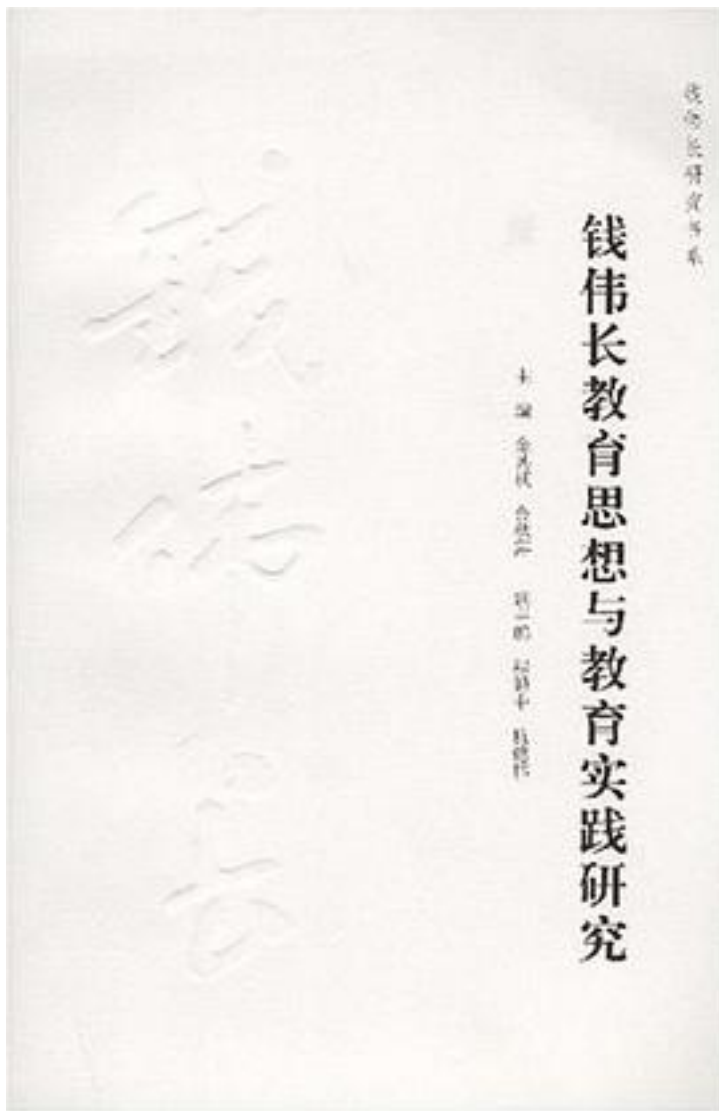 钱伟长研究书系
钱伟长教育思想与教育实践研究
主编